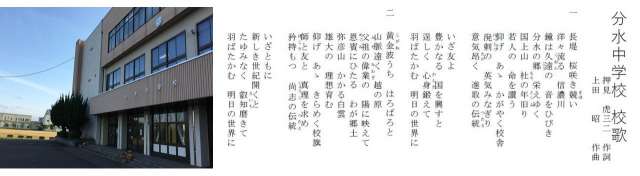 分水中学校 校歌
押見 虎三二 作詞
上田 昭 作曲
一 長堤 桜咲き競い
洋々流る 信濃川
鐘は久遠の 音をひびき
分水の郷 栄えゆく
国上山 杜の年旧り
若人の 命を讃う
仰げ あゝ かがやく校舎
溌剌の 英気みなぎり
意気昂く 進取の伝統
いざ友よ
豊かなる 国を興すと
逞しく 心身鍛えて
羽ばたかむ 明日の世界に
二 黄金波うち はろばろと
山脈遠く 越の原
父祖の偉業の 陽に映えて
恩賚にひたる わが郷土
弥彦山 かかる白雲
雄大の 理想育む
仰げ あゝ きらめく校旗
師と友と 真理を求め
矜持もつ 尚志の伝統
いざともに
新しき世紀開くと
たゆみなく 叡知磨きて
羽ばたかむ 明日の世界に